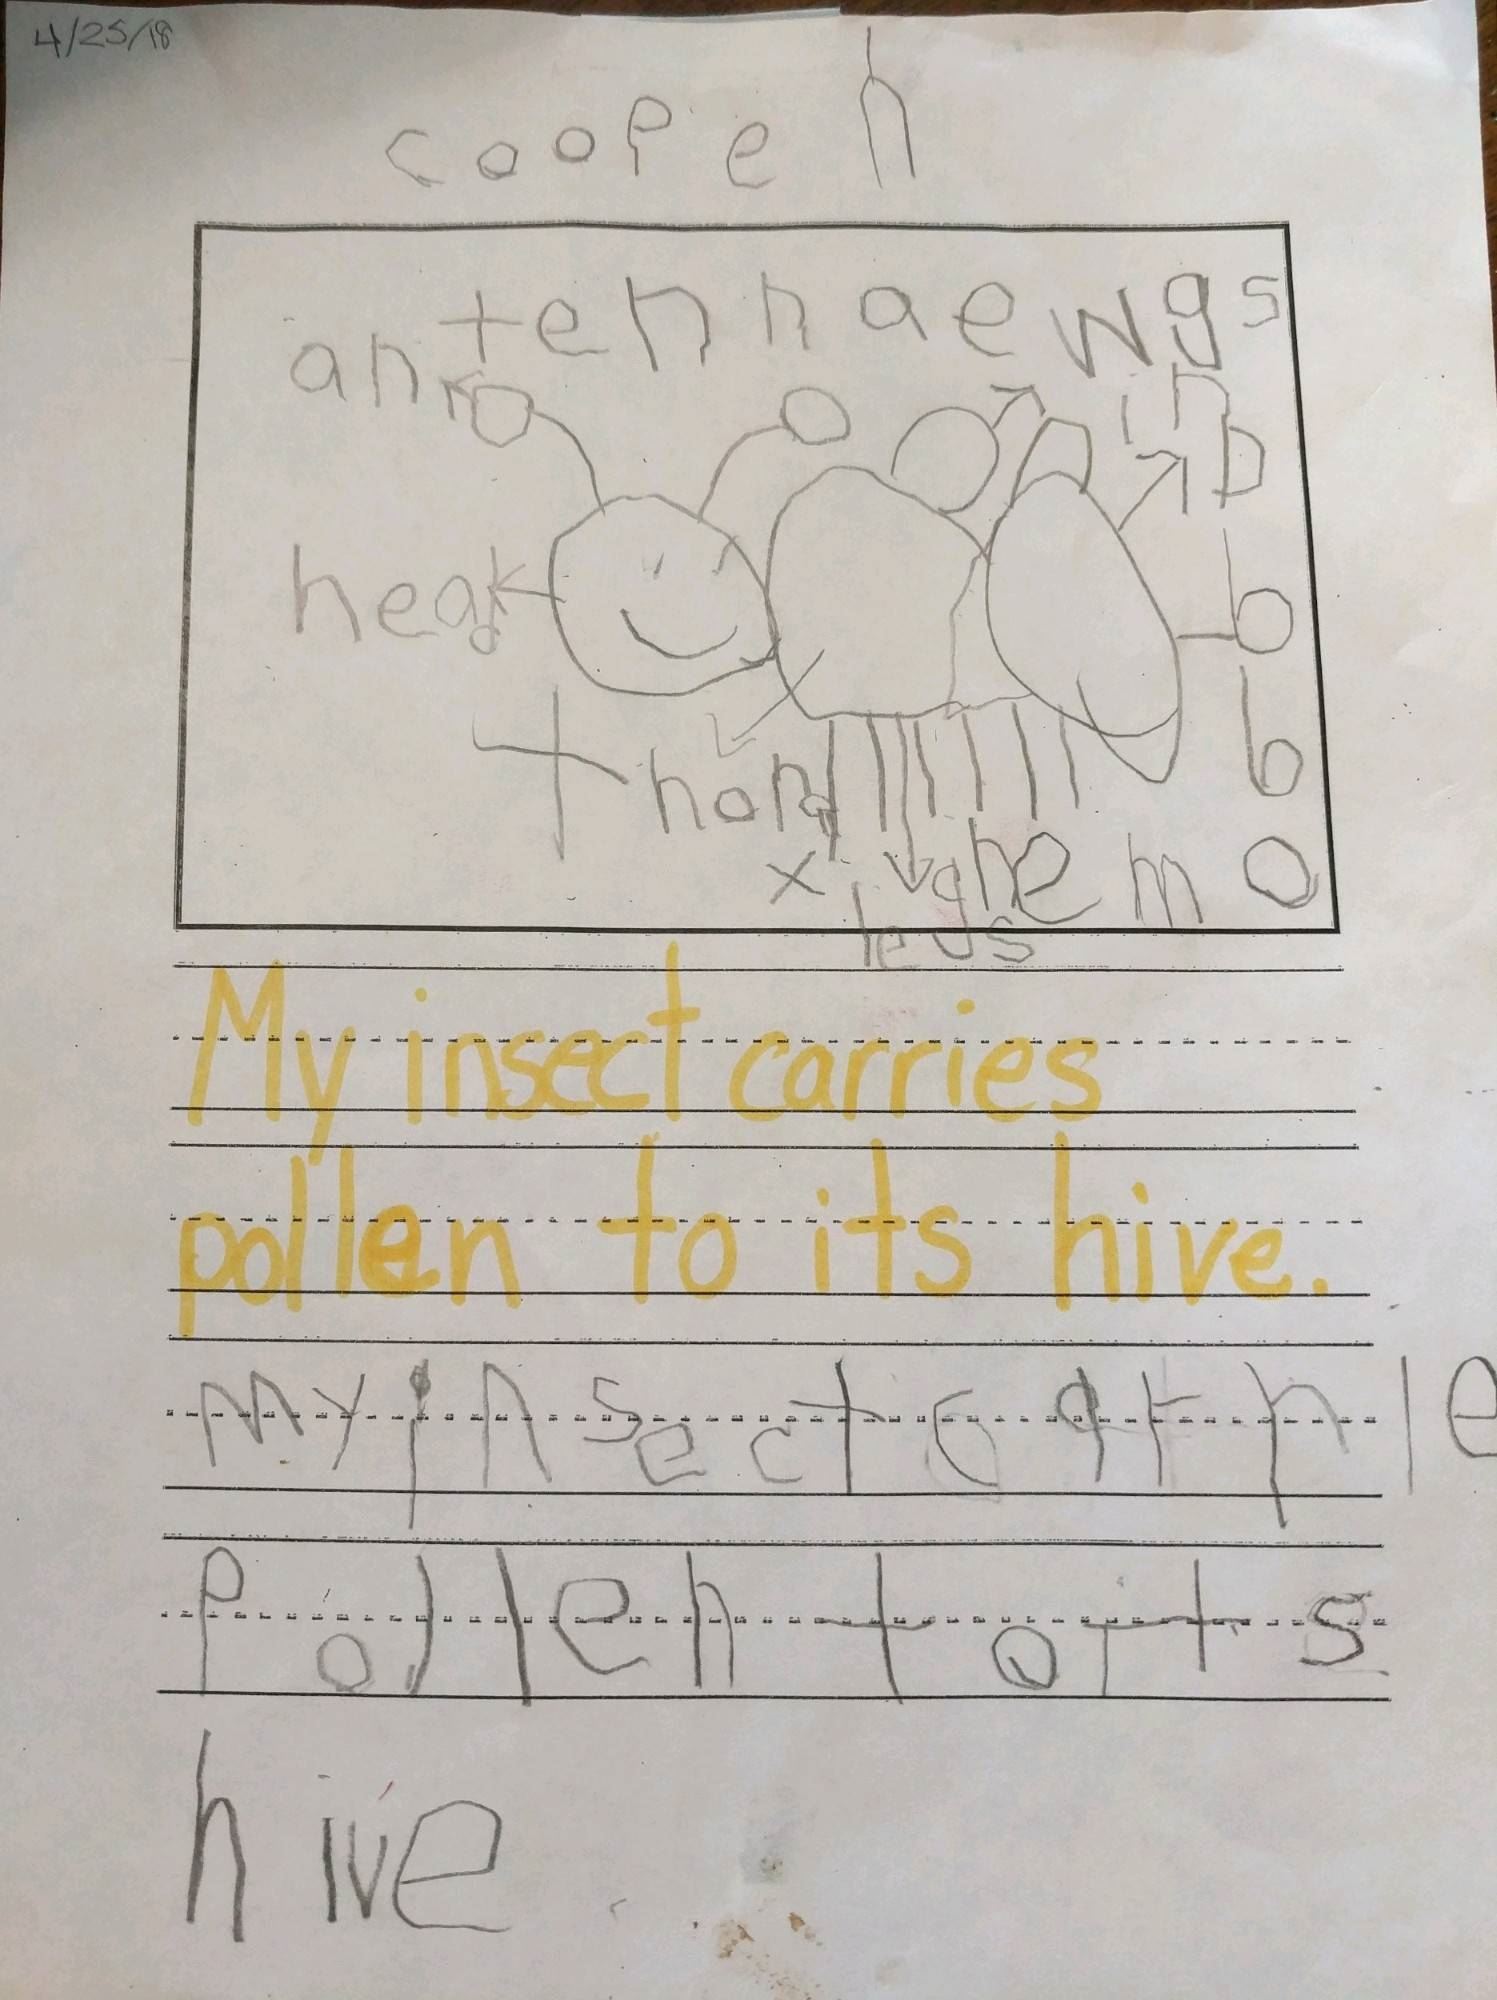 4/25/18
coopeh
antennae wgs
in
head
thorax
legs
My insect carries
pollen to its hive.
my insect
pollen to its
hive